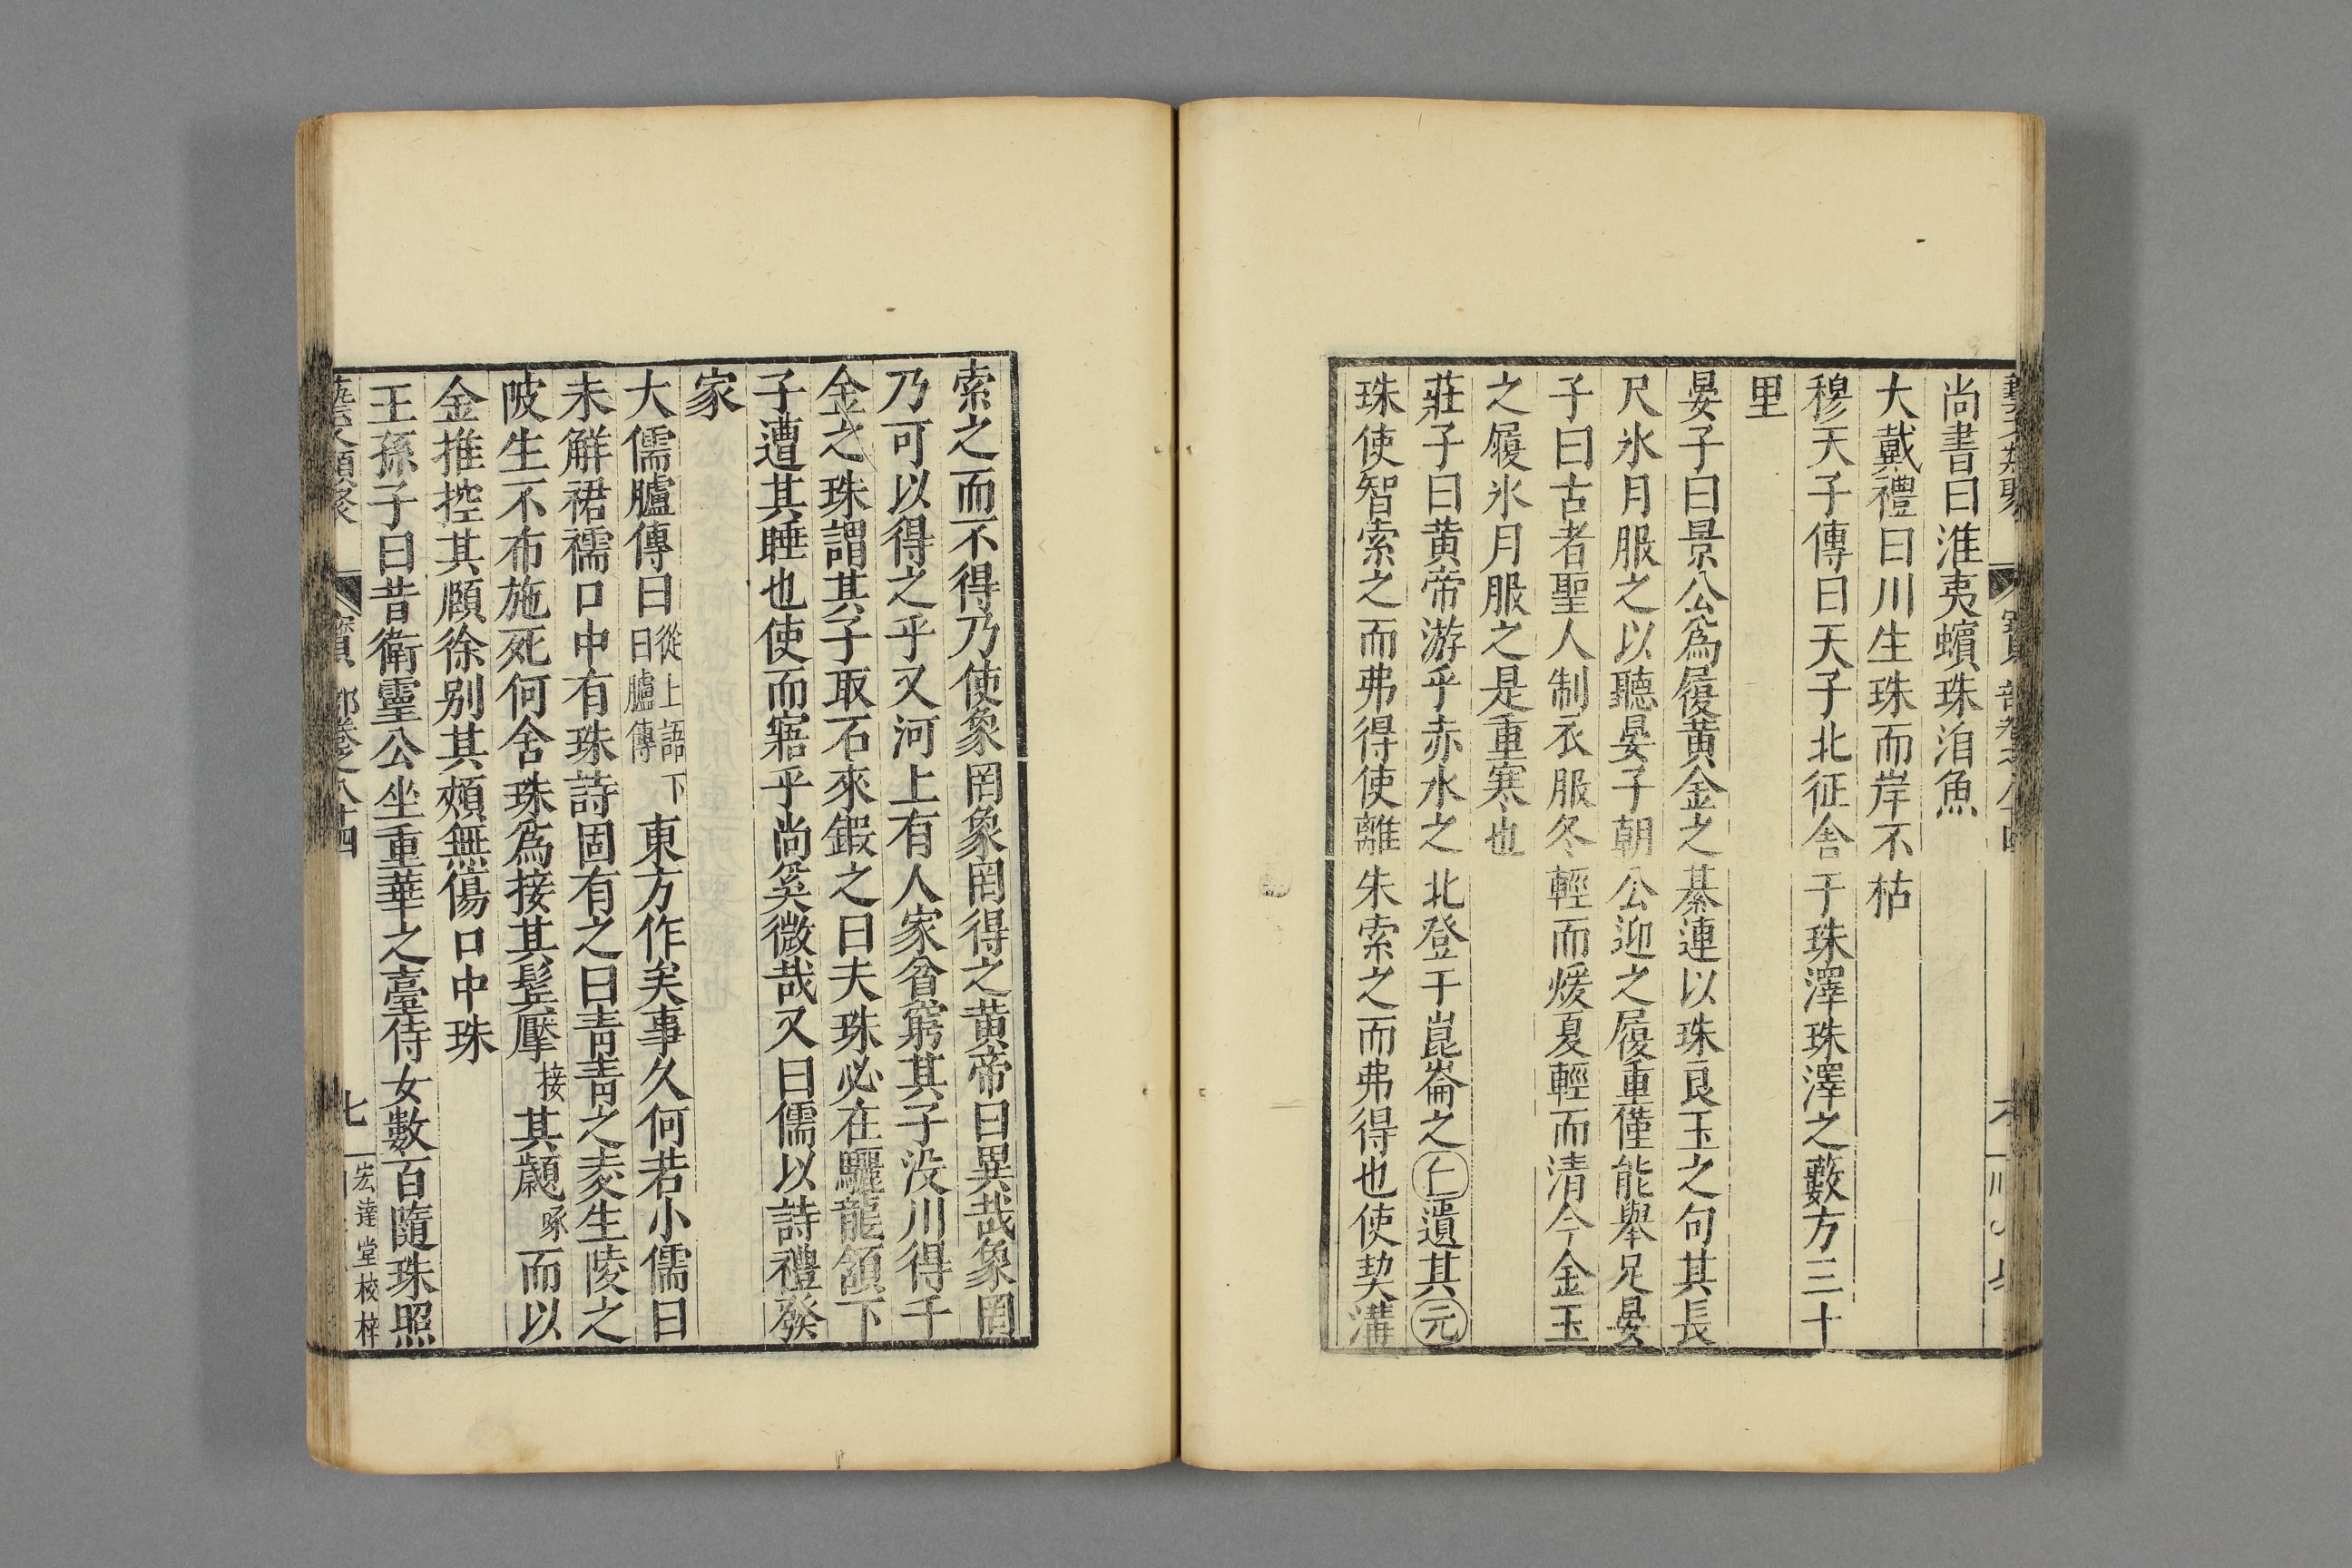 尚書曰淮夷蠙珠洎魚
大戴禮曰川生珠而岸不枯
穆天子傳曰天子北征舍于珠澤珠澤之藪方三十
里
晏子曰景公為履黃金之綦連以珠良玉之句其長
尺氷月服之以聽晏子朝公迎之履重僅能舉足晏
子曰古者聖人制衣服冬輕而煖夏輕而清今金玉
之履氷月服之是重寒也
莊子曰黃帝游乎赤水之北登于崑崙之仁遺其元
珠使智索之而弗得使離朱索之而弗得也使契溝
索之而不得乃使象罔象罔得之黃帝曰異哉象罔
乃可以得之乎又河上有人家貧窮其子没川得千
金之珠謂其子取石來鍛之曰夫珠必在驪龍頷下
子遭其睡也使而寤乎尚奚微哉又曰儒以詩禮發
家
大儒臚傳曰從上語下曰臚傳東方作矣事久何若小儒曰
未解裙襦口中有珠詩固有之曰青青之麥生陵之
陂生不布施死何含珠為接其鬓擪接其顪啄而以
金推控其頤徐别其頰無傷口中珠
王孫子曰昔衛靈公坐重華之臺侍女數百隨珠照
藝文類聚 寶部卷之八十四 七 宏達堂校梓